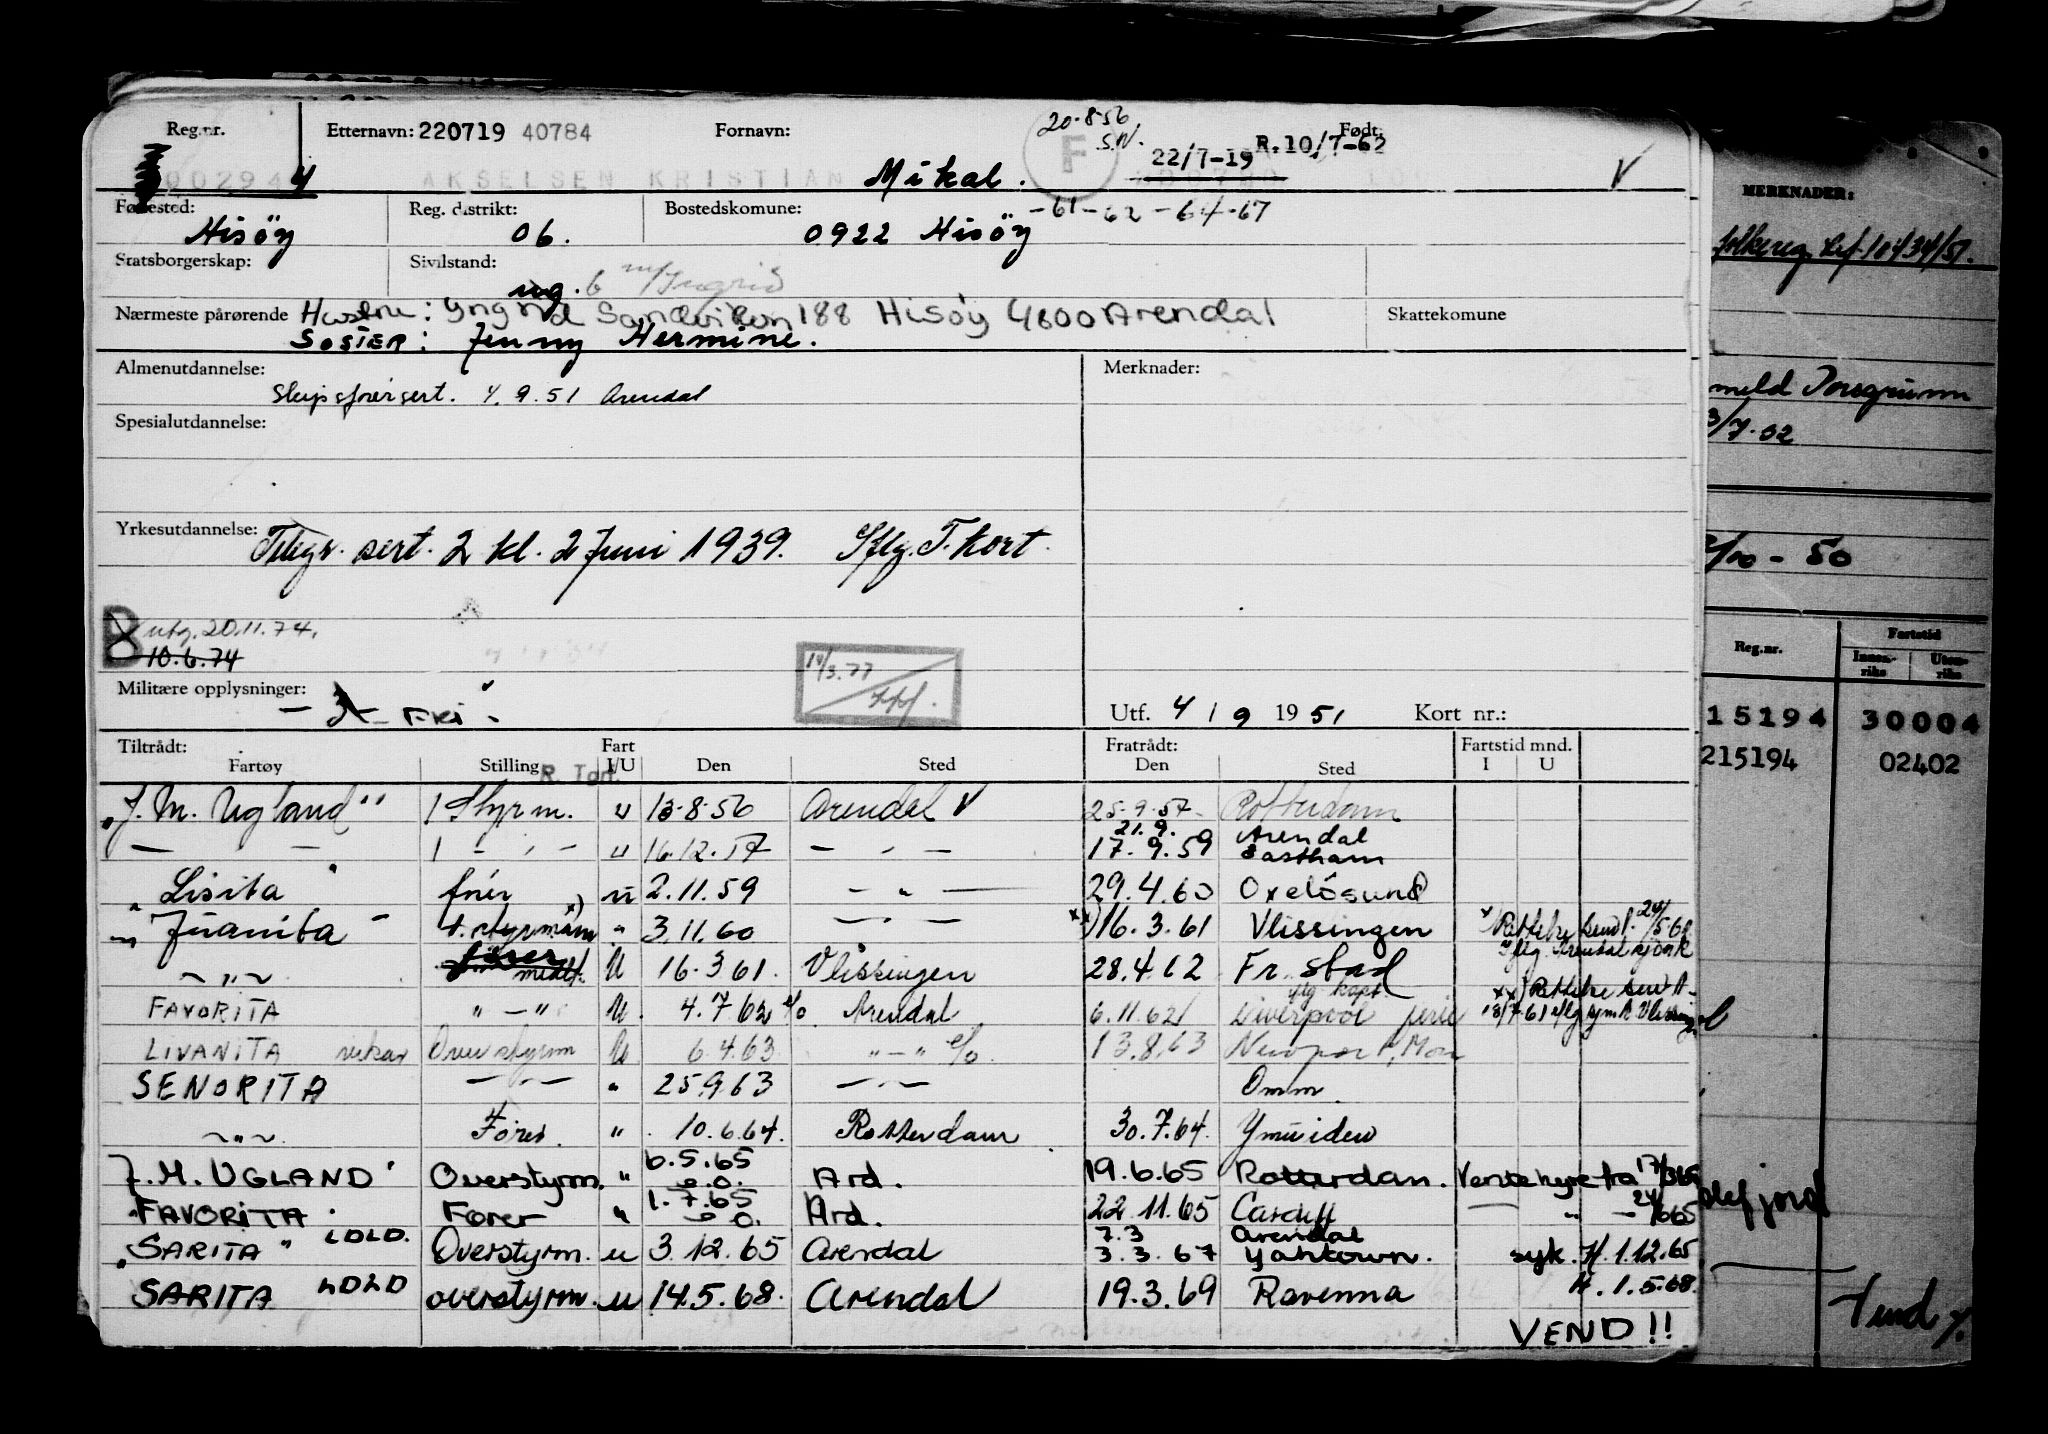 Reg.nr. Etternavn: 220719 40784 Fornavn: 20-8-56 S.N. F Født:
22/7-19 R.10/7-62
4 AKSELSEN KRISTIAN Mikal. V
Fødested: Reg. distrikt: Bostedskomune: -61-62-64-67
Hisöy 06. 0922 Hisöy
Statsborgerskap: Sivilstand:
ug. G m/Ingrid
Nærmeste pårørende Hustru: Yngrid Sandviken 188 Hisöy 4800 Arendal Skattekomune
SØSTER: Jenny Hermine.
Almenutdannelse: Merknader:
Skipsførersert. 4.9.51 Arendal
Spesialutdannelse:
Yrkesutdannelse: Telegr. sert. 2 kl. 2 Juni 1939. Iflg. T. kort.
B utg. 20.11.74.
10.6.74
Militære opplysninger: — Fri.
Utf. 4 / 9 1951 Kort nr.:
Tiltrådt: Fart Fratrådt: Fartstid mnd.
Fartøy Stilling I/U Den Sted Den Sted I U
R. Tom.
"J. M. Ugland" 1 Styrm. u 13-8-56 Arendal V 25.9.57 Rotterdam
— — 1 - " - u 16.12.57 — " — 21.9. 17.9.59 Arendal Eastham
"Lisita" förer u 2.11.59 — " — 29.4.60 Oxelösund
"Juanita" 1. styrmann x) " 3.11.60 — " — xx) 16.3.61 Vlissingen x Rettelse sendt 24/5 61
— " — fører U 16.3 61. Vlissingen 28.4.62 Fr. stad Iflg. Arendal sjömk
FAVORITA " — " U. 4.7 62 e/o Arendal 6.11.62 Liverpool ferie xx) Rettelse 18/7-61 iflg sjmk Vlissingen
LIVANITA vikar Overstyrm U 6.4.63 " — " e/o. 13.8.63 Newport, Mon
SENORITA — " — " 25.9.63 — " — Omm.
— " — Fører. " 10.6.64. Rotterdam 30.7.64. Ymuiden
J. M. UGLAND" Overstyrm. " 6.5.65 e.o. Ard. 19.6.65 Rotterdam. Ventehyre fra 17/3 65
"FAVORITA" Fører " 1.7.65 e o. Ard. 22.11.65 Cardiff — " — 24/6 65
"SARITA" LOLO. Overstyrm. u 3.12.65 Arendal 7.3 3.3.67 Arendal syk. H. 1.12.65
SARITA LOLO overstyrm. u 14.5.68. Arendal 19.3.69 Ravenna H. 1.5.68.
VEND!!
MERKNADER:
meld Porsgrunn
3/7-52
- 50
Reg.nr. Fartstid
Innenriks Utenriks
15194 30004
215194 02402
Vend